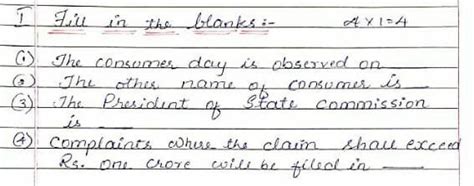 I Fill in the blanks :- 4 x 1 = 4
(1) The consumer day is observed on ___
(2) The other name of consumer is ___
(3) The President of State commission
is ___
(4) Complaints where the claim shall exceed
Rs. one crore will be filed in ___